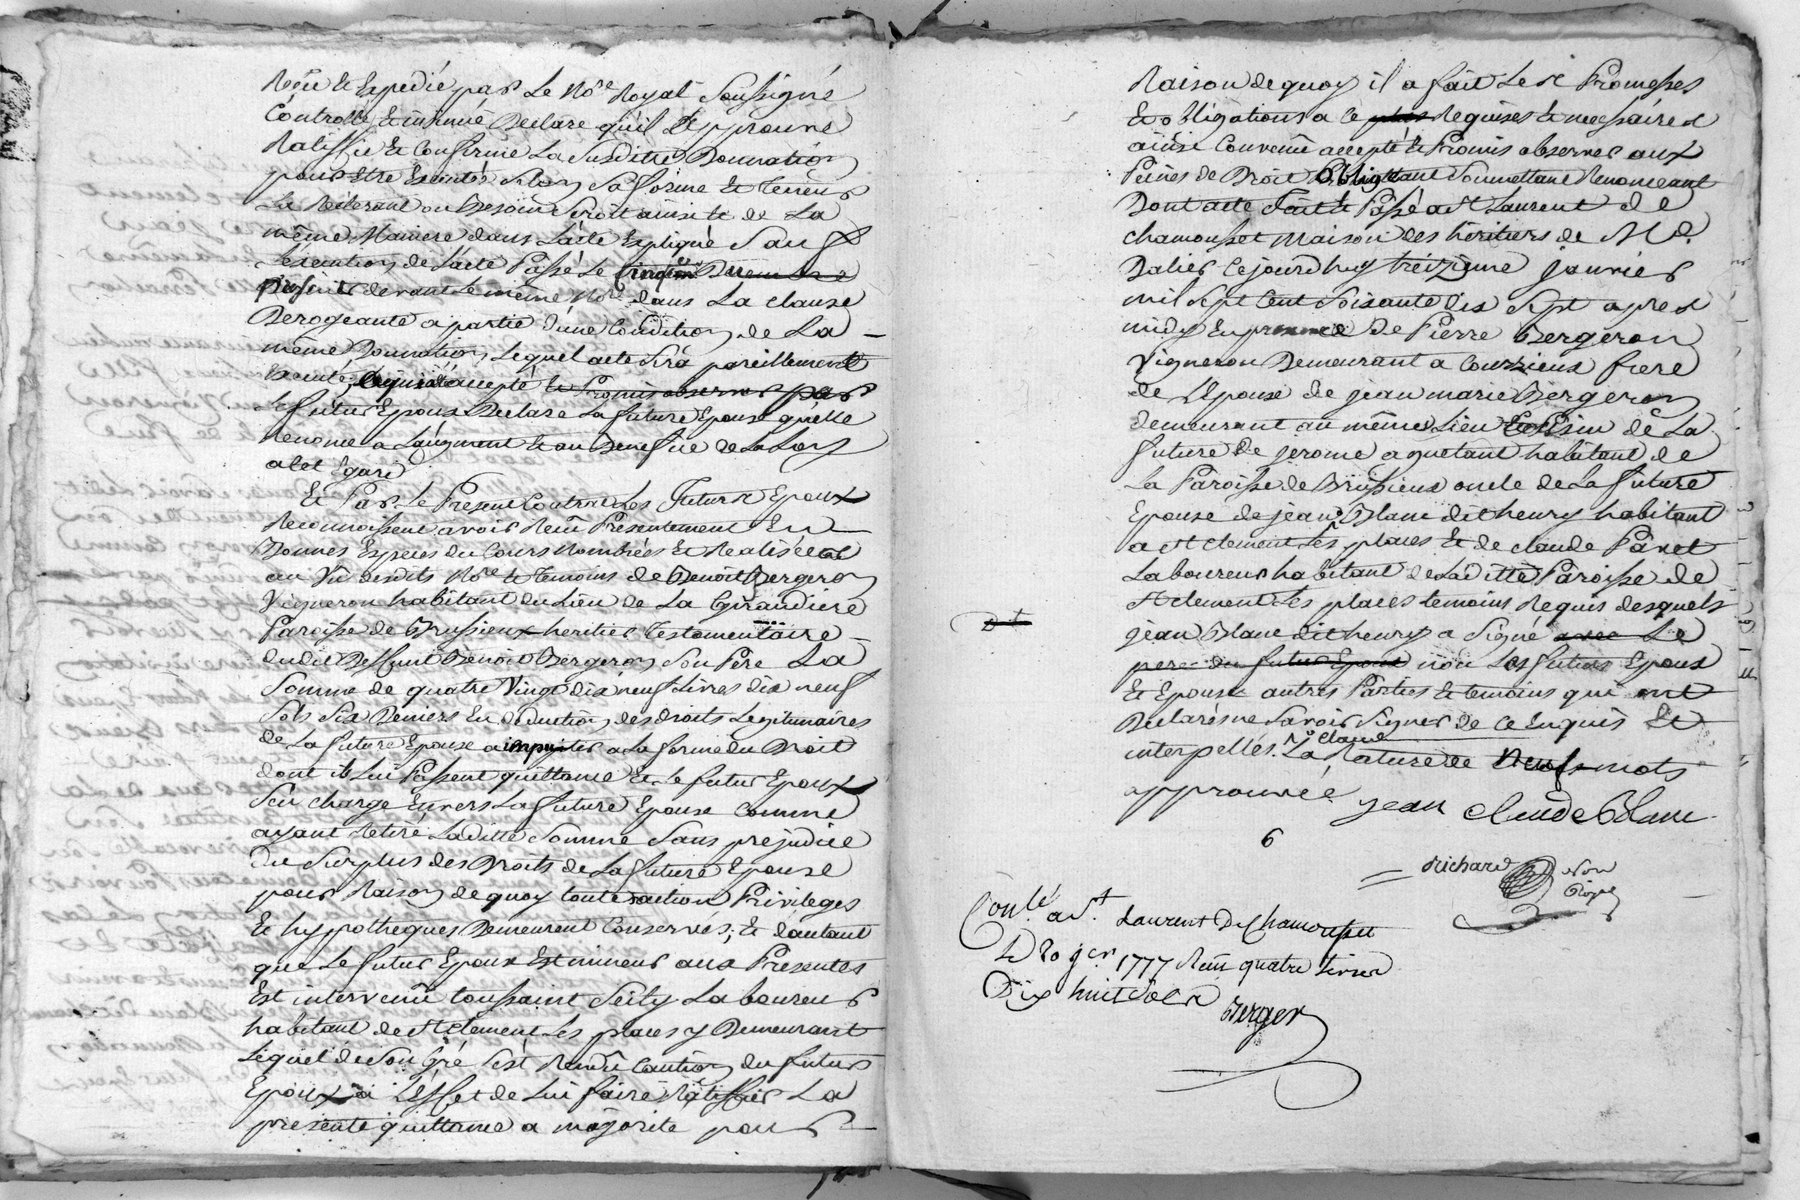 Reçu et Expedié par Le No.re Royal Soussigné
Controllé et insinué Declare qu'il Approuve
Ratiffie et Confirme La Susditte Donnation
pour Etre Executée Selon Sa forme et Teneur
La Reiterant ou Besoin Seroit ainsi et de La
même Maniere dans L'acte Expliqué Sauf
L'execution de L'acte Passé Le
devant Le même No.re dans La clause
Derogeante a partie d'une Condition de La
même Donnation, Lequel acte Sera pareillement
Executé, accepté et Promis observer par
Le futur Epoux Declare La future Epouse qu'elle
Renonce a L'augment et au Benefice de La Loy
a cet Egard
Et Par Le Present Contract Les Futurs Epoux
Reconnoissent avoir Reçu Presentement En
Bonnes Especes du Cours Nombrées et Realisées
au Vû desdits No.re et temoins de Benoit Bergeron
Vigneron habitant du Lieu de La Giraudiere
Paroisse de Brussieux heritier Testamentaire
dudit Deffunt Benoit Bergeron Son Pere La
Somme de quatre Vingt dix neuf Livres dix neuf
Sols Six Deniers En deduction des droits Legitimaires
de La future Epouse a imputer a La forme du Droit
dont ils Lui Passent quittance Et Le futur Epoux
S'en charge Envers La future Epouse Comme
ayant Retiré Laditte Somme Sans prejudice
du Surplus des Droits de La future Epouse
pour Raison de quoy toutes action Privileges
Et hyppotheques Demeurent Conservés; Et d'autant
que Le futur Epoux Est mineur aux Presentes
Est intervenû toussaint Laboureur
habitant de St Clement Les places y Demeurant
Lequel de Son Gré S'est Rendû Caution du futur
Epoux a L'effet de Lui faire Ratiffier La
presente quittance a majorité pour
Raison de quoy il a fait Les Promesses
Et obligations a ce Requises et necessaires
ainsi Convenû accepté et Promis observer aux
Peines de Droit Obligeant Soumettant Renonceant
Dont acte Fait et Passé a St Laurent de
chamousset Maison des héritiers de Md.
Dalier Cejourd'huy treizieme janvier
mil Sept Cent Soixante dix Sept apres
midy En presence de Pierre Bergeron
Vigneron Demeurant a Courzieux frere
de L'Epouse de jean marie Bergeron
demeurant au même Lieu Cousin de La
future De jerome aguetant habitant de
La Paroisse de Brussieux oncle de La future
Epouse de jean Blanc dit henry habitant
a St Clement Les places Et de claude Pavet
Laboureur habitant de Laditte Paroisse de
St Clement Les places temoins Requis desquels
jean Blanc dit henry a Signé avec Le
pere du futur Epoux non Les futurs Epoux
Et Epouse autres Parties Et temoins qui ont
Declarés ne Savoir Signer de ce Enquis Et
interpellés. La Rature de Neuf mots
approuvée
jean claude Blanc
6
Richard
Contr.lé a St. Laurent De Chamousset
Le 20 jer 1777 Reçu quatre Livres
Dix huit Sols
Berger